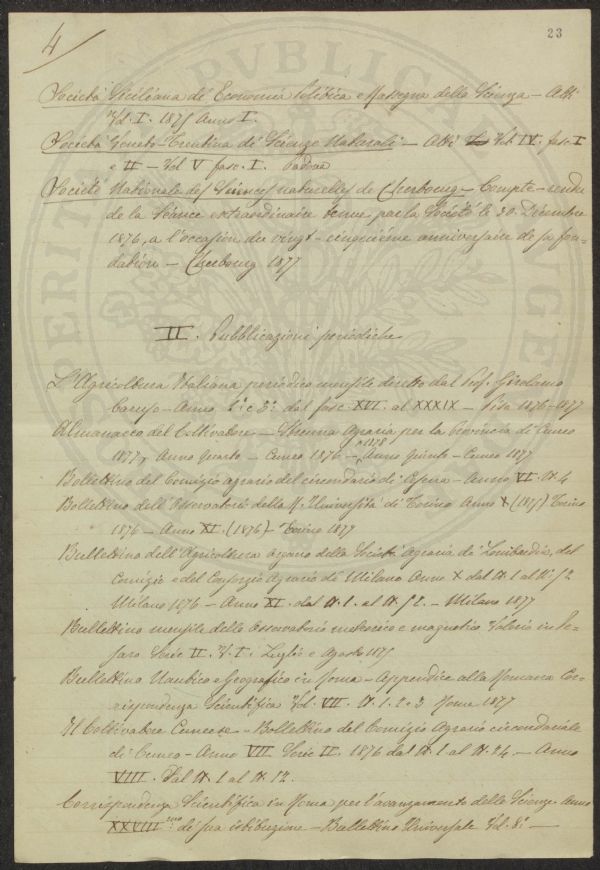 4
23
Società Siciliana di Economia Politica e Rassegna della Scienza — Atti
Vol. I. 1875 Anno I.
Società Veneto-Trentina di Scienze Naturali — Atti Vol. IV. fasc. I
e II — Vol V fasc. I. Padova
Société Nationale des Sciences naturelles de Cherbourg — Compte-rendu
de la Séance extraordinaire tenue par la Société le 30 Décembre
1876, a l'occasion du vingt-cinquième anniversaire de sa fon-
dation — Cherbourg 1877
II. Pubblicazioni periodiche
L'Agricoltura Italiana periodico mensile diretto dal Prof. Girolamo
Caruso — Anno 2.° e 3.° dal fasc. XVI. al XXXIX — Pisa 1876-1877
Almanacco del Coltivatore — Strenna Agraria per la Provincia di Cuneo
1877, Anno quarto — Cuneo 1876 — 1878 Anno quinto — Cuneo 1877
Bollettino del Comizio agrario del circondario di — Anno VI. N. 4
Bollettino dell'Osservatorio della R. Università di Torino Anno X (1875) Torino
1876 — Anno XI. (1876) — Torino 1877
Bullettino dell'Agricoltura organo della Società Agraria di Lombardia, del
Comizio e del Consorzio Agrario di Milano Anno X dal N. 1 al N. 52
Milano 1876 — Anno XI. dal N. 1. al N. 52. — Milano 1877
Bullettino mensile dello Osservatorio meteorico e magnetico Valerio in Pe-
saro Serie II. V. I. Luglio e Agosto 1875
Bullettino Nautico e Geografico in Roma — Appendice alla Romana Cor-
rispondenza Scientifica Vol. VII. N. 1. 2 e 3 Roma 1877
Il Coltivatore Cuneese — Bollettino del Comizio Agrario circondariale
di Cuneo — Anno VII Serie II. 1876 dal N. 1 al N. 24 — Anno
VIII. Dal N. 1 al N. 12.
Corrispondenza Scientifica in Roma per l'avanzamento delle Scienze Anno
XXVIII mo di sua istituzione — Bullettino Universale Vol. 8.° —